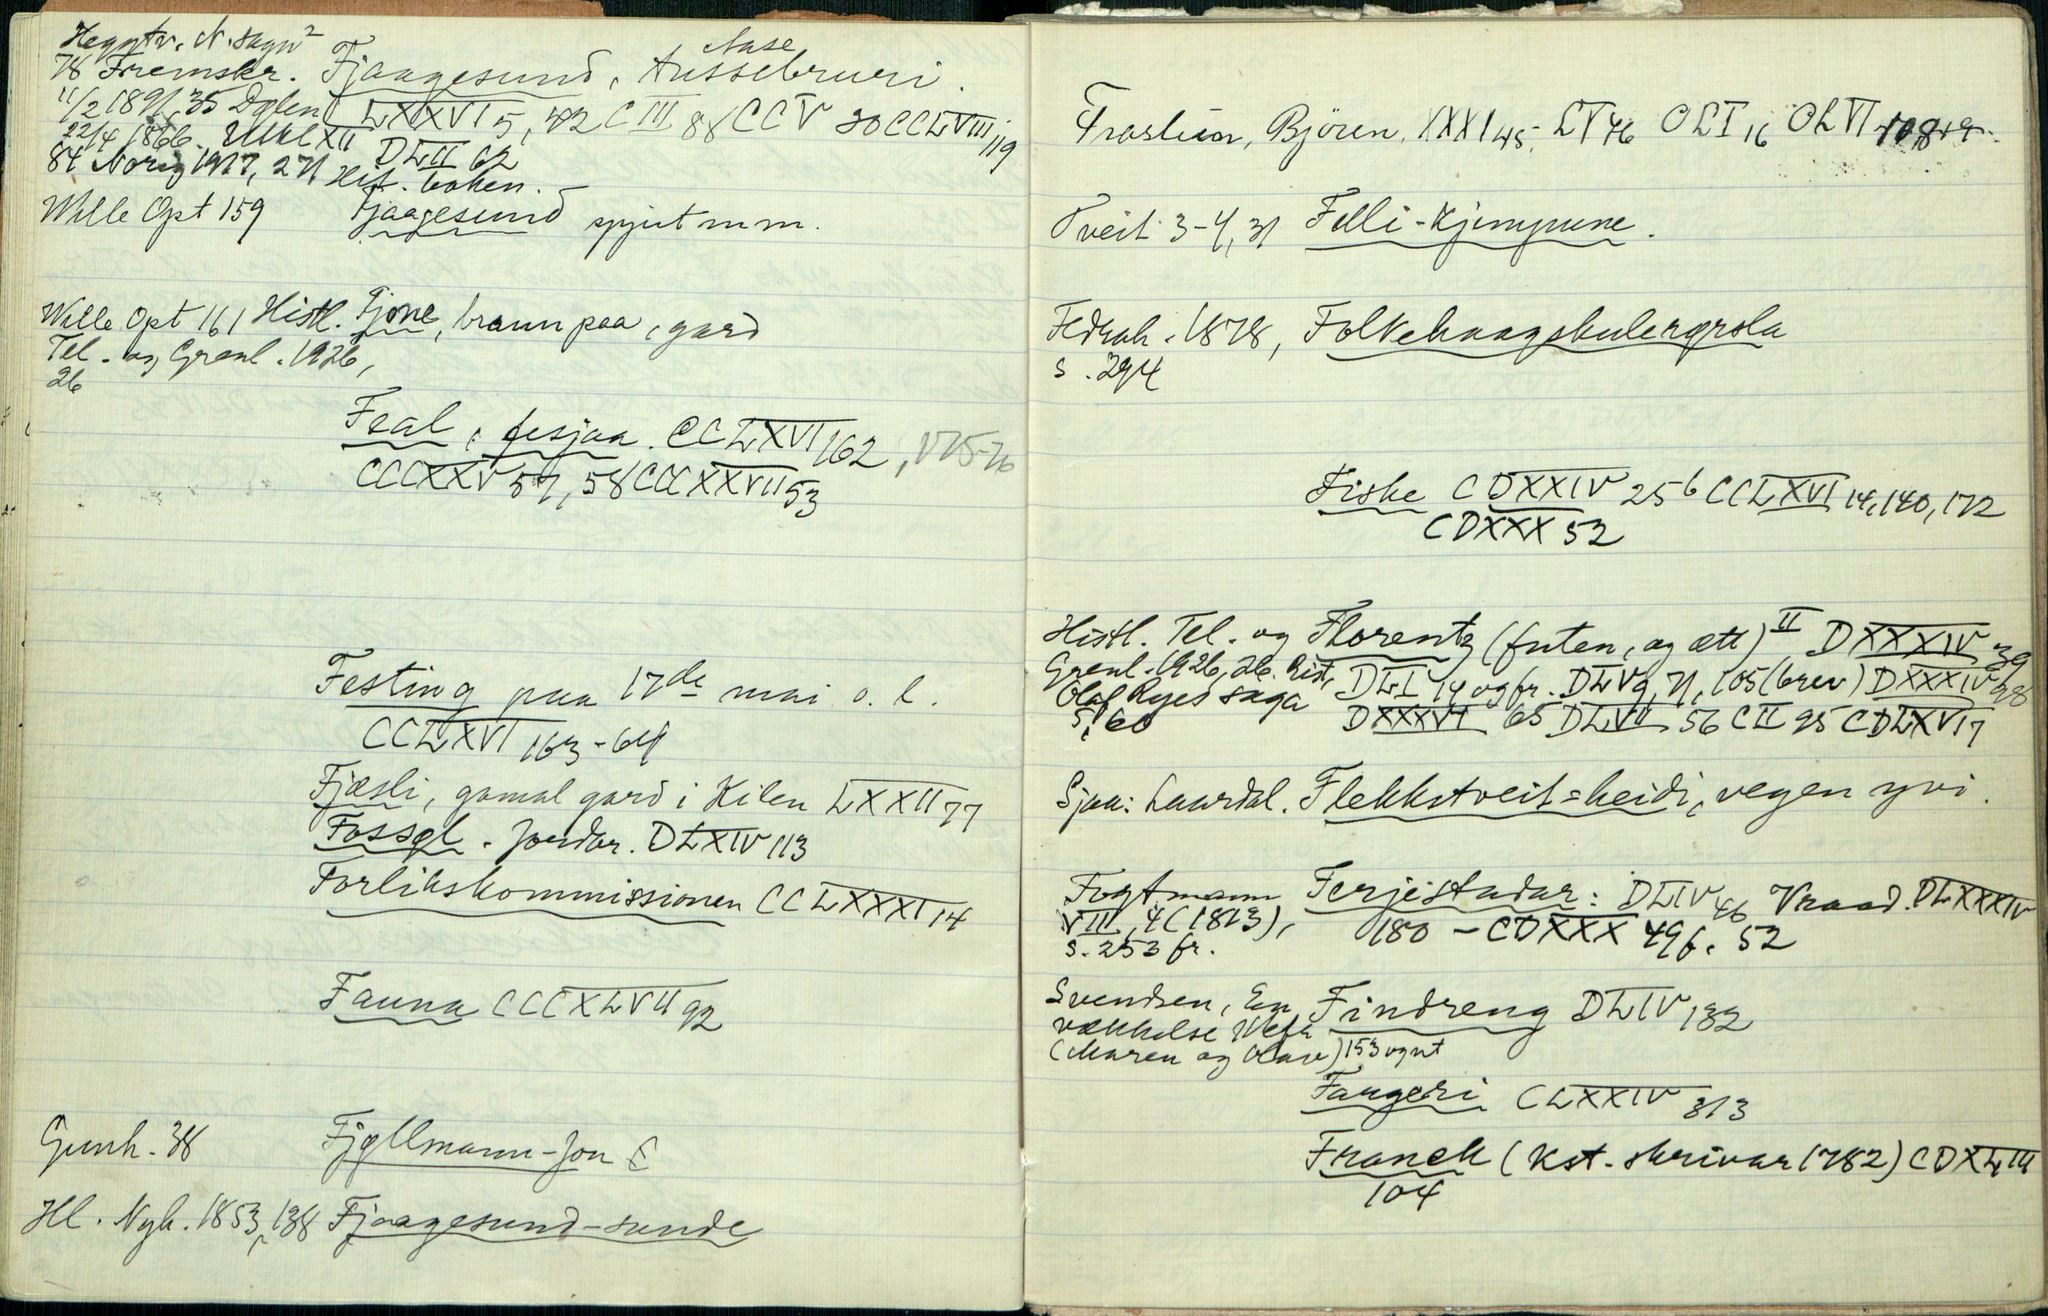 Heggtv. N. sagn²
78 Fremskr. Fjaagesund, Aase Aussebruri.
11/2 1891, 35 Dølen LXXXVI 5, 42 CIII 88 CCV 20 CCLVIII 119
22/4 1866. XII DLII 62
84 Norig 1917, 271 Hist. boken.
Wille Opt 159 Fjaagesund spjut m m.
Wille Opt 161 Histl. Fjone, braun paa, gard
Tel. og Grenl. 1926,
26
Feal, fesjaa. CCLXVI 162, V 75-76
CCCXXV 57, 58 CCCXXVII 53
Festing paa 17de mai o. l.
CCLXVI 163-64
Fjøsli, gamal gard i Kilen LXXII 77
Fossøl. Jordar. DLXIV 113
Forlikskommissionen CCLXXXI 14
Fauna CCCXLVII 92
Gunh. 38 Fjøllmann-Jon
Hl. Nyh. 1853, 138 Fjaagesund-sunde
Bjøren, XXXI 45, LV 46 CLI 16 CLVI 108
Tveit 3-4, 31 Felli-Kjempune.
Fedrah. 1878, Folkehaugskulerøsla
s. 294
Fiske CDXXIV 256 CCLXVI 14, 140, 172
CDXXX 52
Histl. Tel. og Florentz (futen, og ætt) II DXXXIV 39
Grenl. 1926, 26. Rist, DLI 14 og fr. DLV 9, 71, 105 (brev) DXXXIV 98
Olaf Ryes saga DXXXVI 65 DLVII 56 CII 95 CDLXVI 7
s. 60
Sjaa: Laurdal. Flekkstveit-heidi, vegen yvi.
Fogtmann Ferjestadar: DLIV 46 Vraad. DLXXXIV
VII, 4 (1813), 180 - CDXXX 49 f. 52
s. 253 fr.
Svendsen, En Findreng DLIV 132
vækkelse
(Maren og Olav) 153 ogut
Fargeri CLXXIV 313
Franck (Kst. skrivar 1782) CDXLIII
104